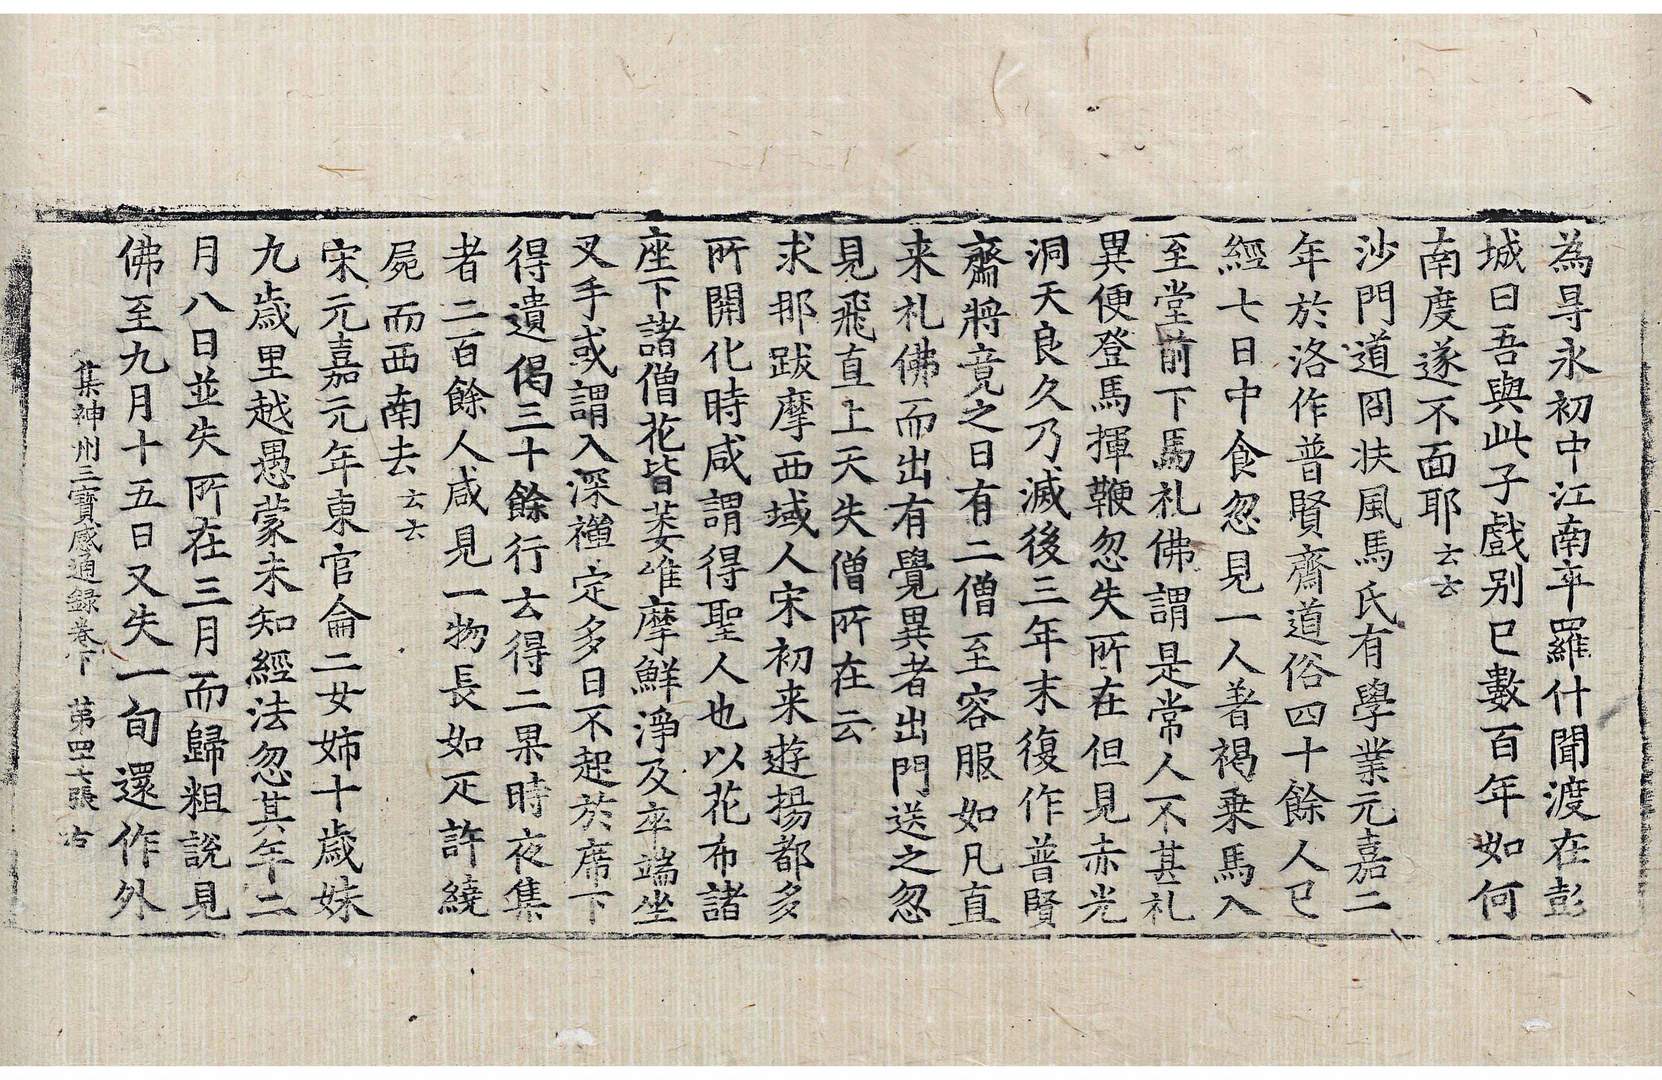 為尋永初中江南卒羅什聞渡在彭
城曰吾與此子戲别已數百年如何
南度遂不面耶云云
沙門道冏扶風馬氏有學業元嘉二
年於洛作普賢齋道俗四十餘人已
經七日中食忽見一人著褐乗馬入
至堂前下馬礼佛謂是常人不甚礼
異便登馬揮鞭忽失所在但見赤光
洞天良久乃滅後三年末復作普賢
齋將竟之日有二僧至容服如凡直
来礼佛而出有覺異者出門送之忽
見飛直上天失僧所在云
求那跋摩西域人宋初来遊揚都多
所開化時咸謂得聖人也以花布諸
座下諸僧花皆萎唯摩鮮淨及卒端坐
叉手或謂入深禪定多日不起於席下
得遺偈三十餘行云得二果時夜集
者二百餘人咸見一物長如疋許繞
屍而西南去云云
宋元嘉元年東官侖二女姉十歲妹
九歲里越愚蒙未知經法忽其年二
月八日並失所在三月而歸粗說見
佛至九月十五日又失一旬還作外
集神州三寶感通錄卷下 第四七張 古